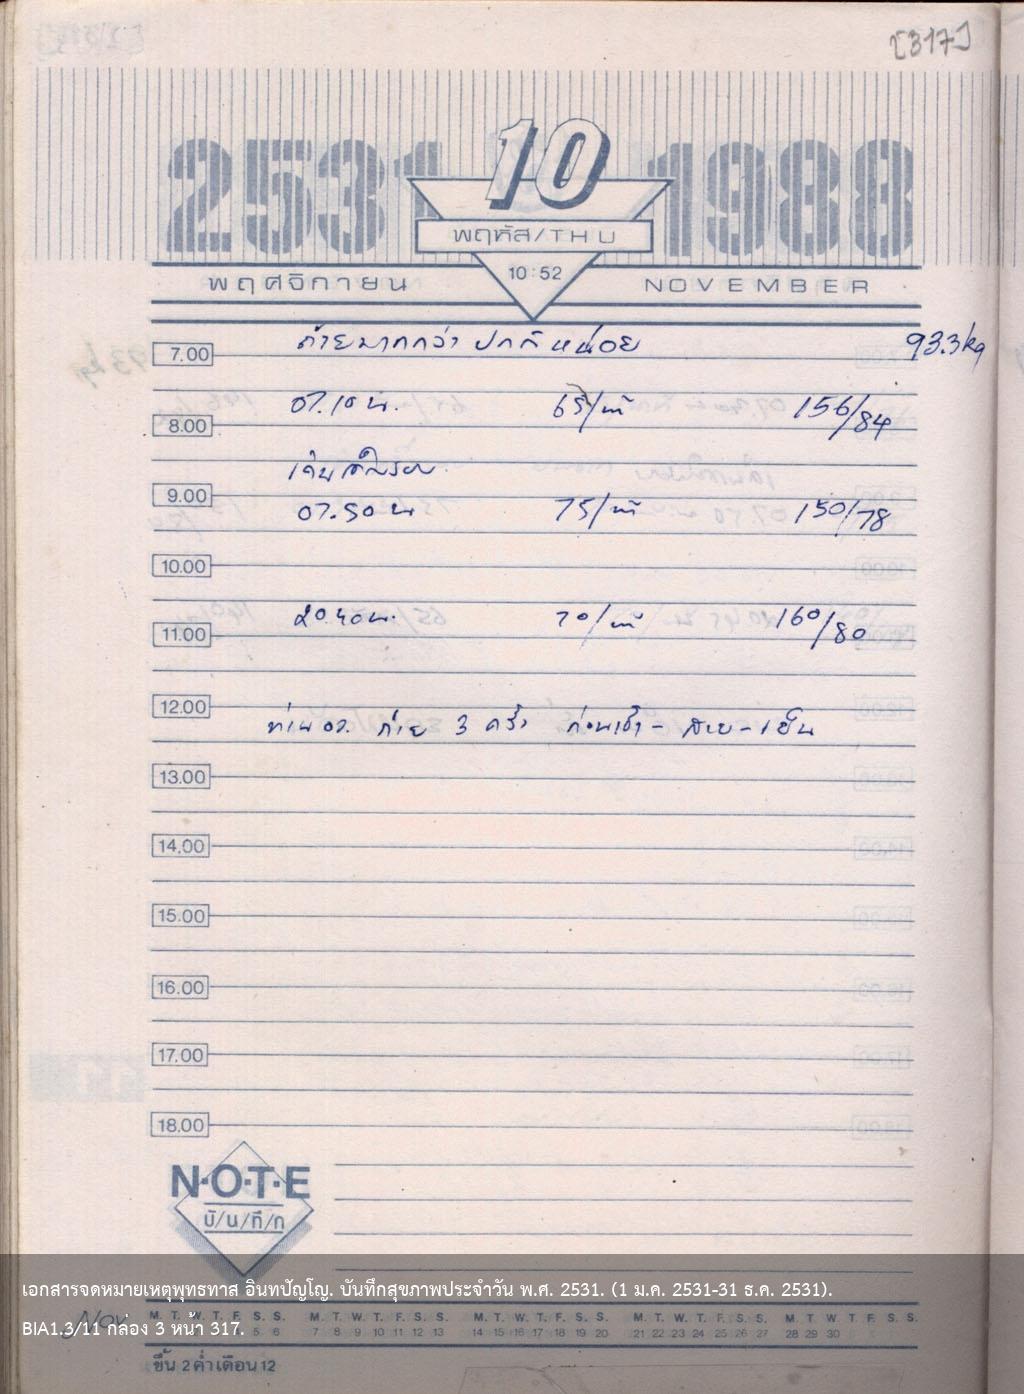 [317]
2531 10 1988
พฤหัส/THU
10:52
พฤศจิกายน NOVEMBER
7.00 ถ่ายมากกว่า ปกติ หน่อย 93.3 kg
07.10 น. 65/นาที 156/84
8.00
9.00
07.50 น 75/นาที 150/78
10.00
20.40 น. 70/นาที 160/80
11.00
12.00
ถ่าย 3 ครั้ง ก่อนเช้า - สาย - เย็น
13.00
14.00
15.00
16.00
17.00
18.00
N·O·T·E
บั/น/ทึ/ก
เอกสารจดหมายเหตุพุทธทาส อินทปัญโญ. บันทึกสุขภาพประจำวัน พ.ศ. 2531. (1 ม.ค. 2531-31 ธ.ค. 2531).
Nov M. T. W. T. F. S. S. M. T. W. T. F. S. S. M. T. W. T. F. S. S. M. T. W. T. F. S. S. M. T. W. T. F. S. S.
BIA1.3/11 กล่อง 3 หน้า 317.
5 6 7 8 9 10 11 12 13 14 15 16 17 18 19 20 21 22 23 24 25 26 27 28 29 30
ขึ้น 2 ค่ำ เดือน 12